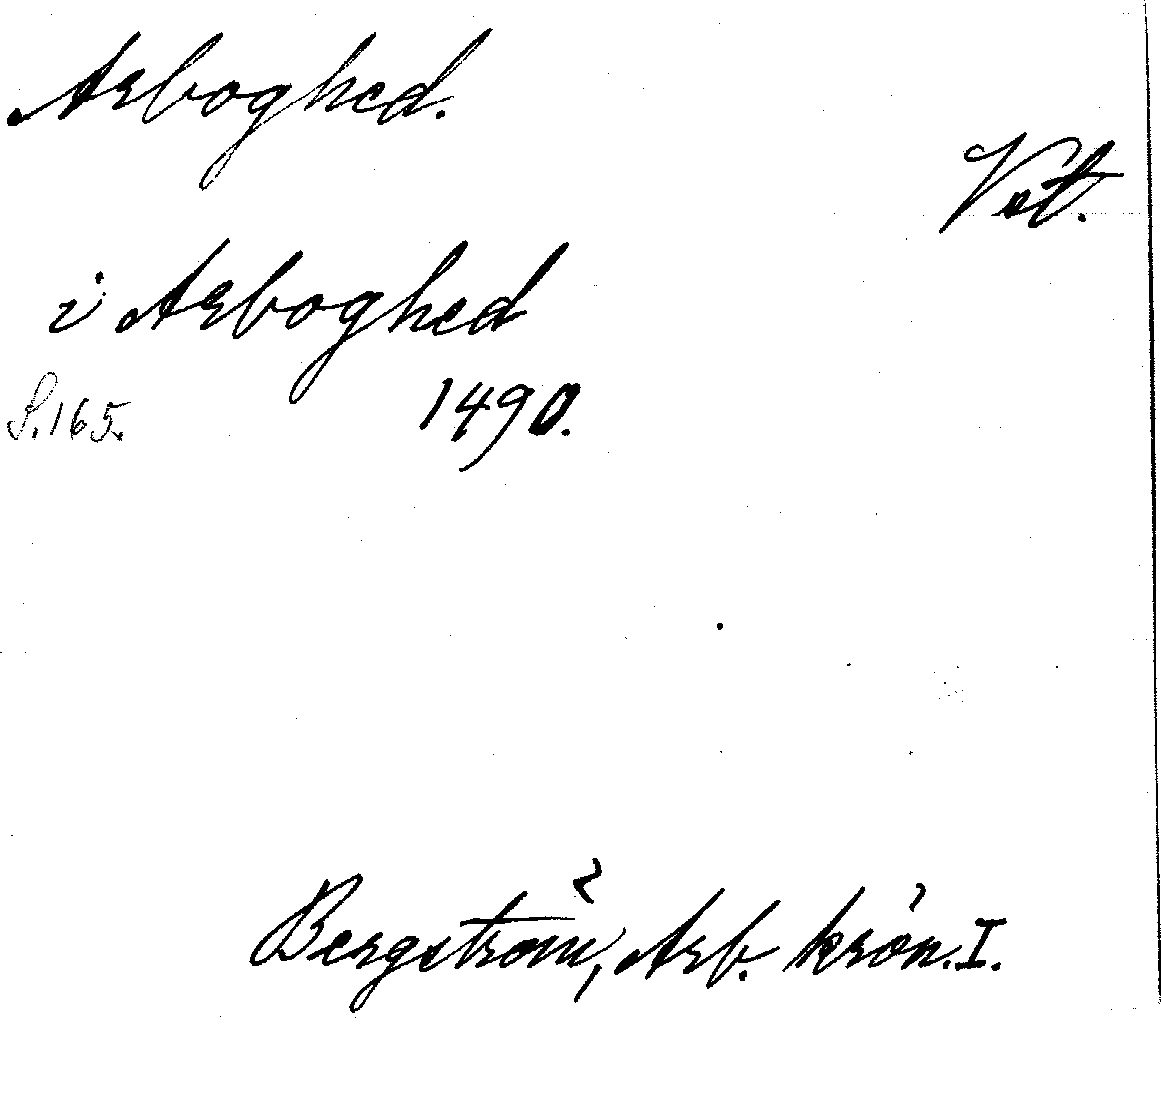 Arboghed.
Vst.
i Arboghed
S. 165. 1490.
Bergström, Arb. krön. I.